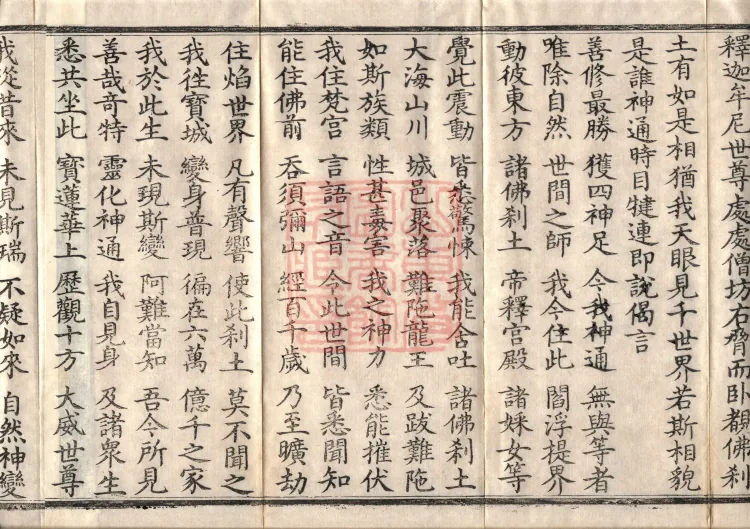 釋迦牟尼世尊處處僧坊右脅而卧都佛刹
土有如是相猶我天眼見千世界若斯相貌
是誰神通時目犍連即說偈言
善修最勝 獲四神足 今我神通 無與等者
唯除自然 世間之師 我今住此 閻浮提界
動彼東方 諸佛刹土 帝釋宮殿 諸婇女等
覺此震動 皆悉驚悚 我能舍吐 諸佛刹土
大海山川 城邑聚落 難陁龍王 及跋難陁
如斯族類 性甚毒害 我之神力 悉能摧伏
我住梵宮 言語之音 今此世間 皆悉聞知
能住佛前 吞須彌山 經百千歲 乃至曠劫
住焰世界 凡有聲響 使此刹土 莫不聞之
我徃寶城 變身普現 徧在六萬 億千之家
我於此生 未現斯變 阿難當知 吾今所見
善哉竒特 靈化神通 我自見身 及諸衆生
悉共坐此 寶蓮華上 歷觀十方 大威世尊
我從昔來 未見斯瑞 不疑如來 自然神變